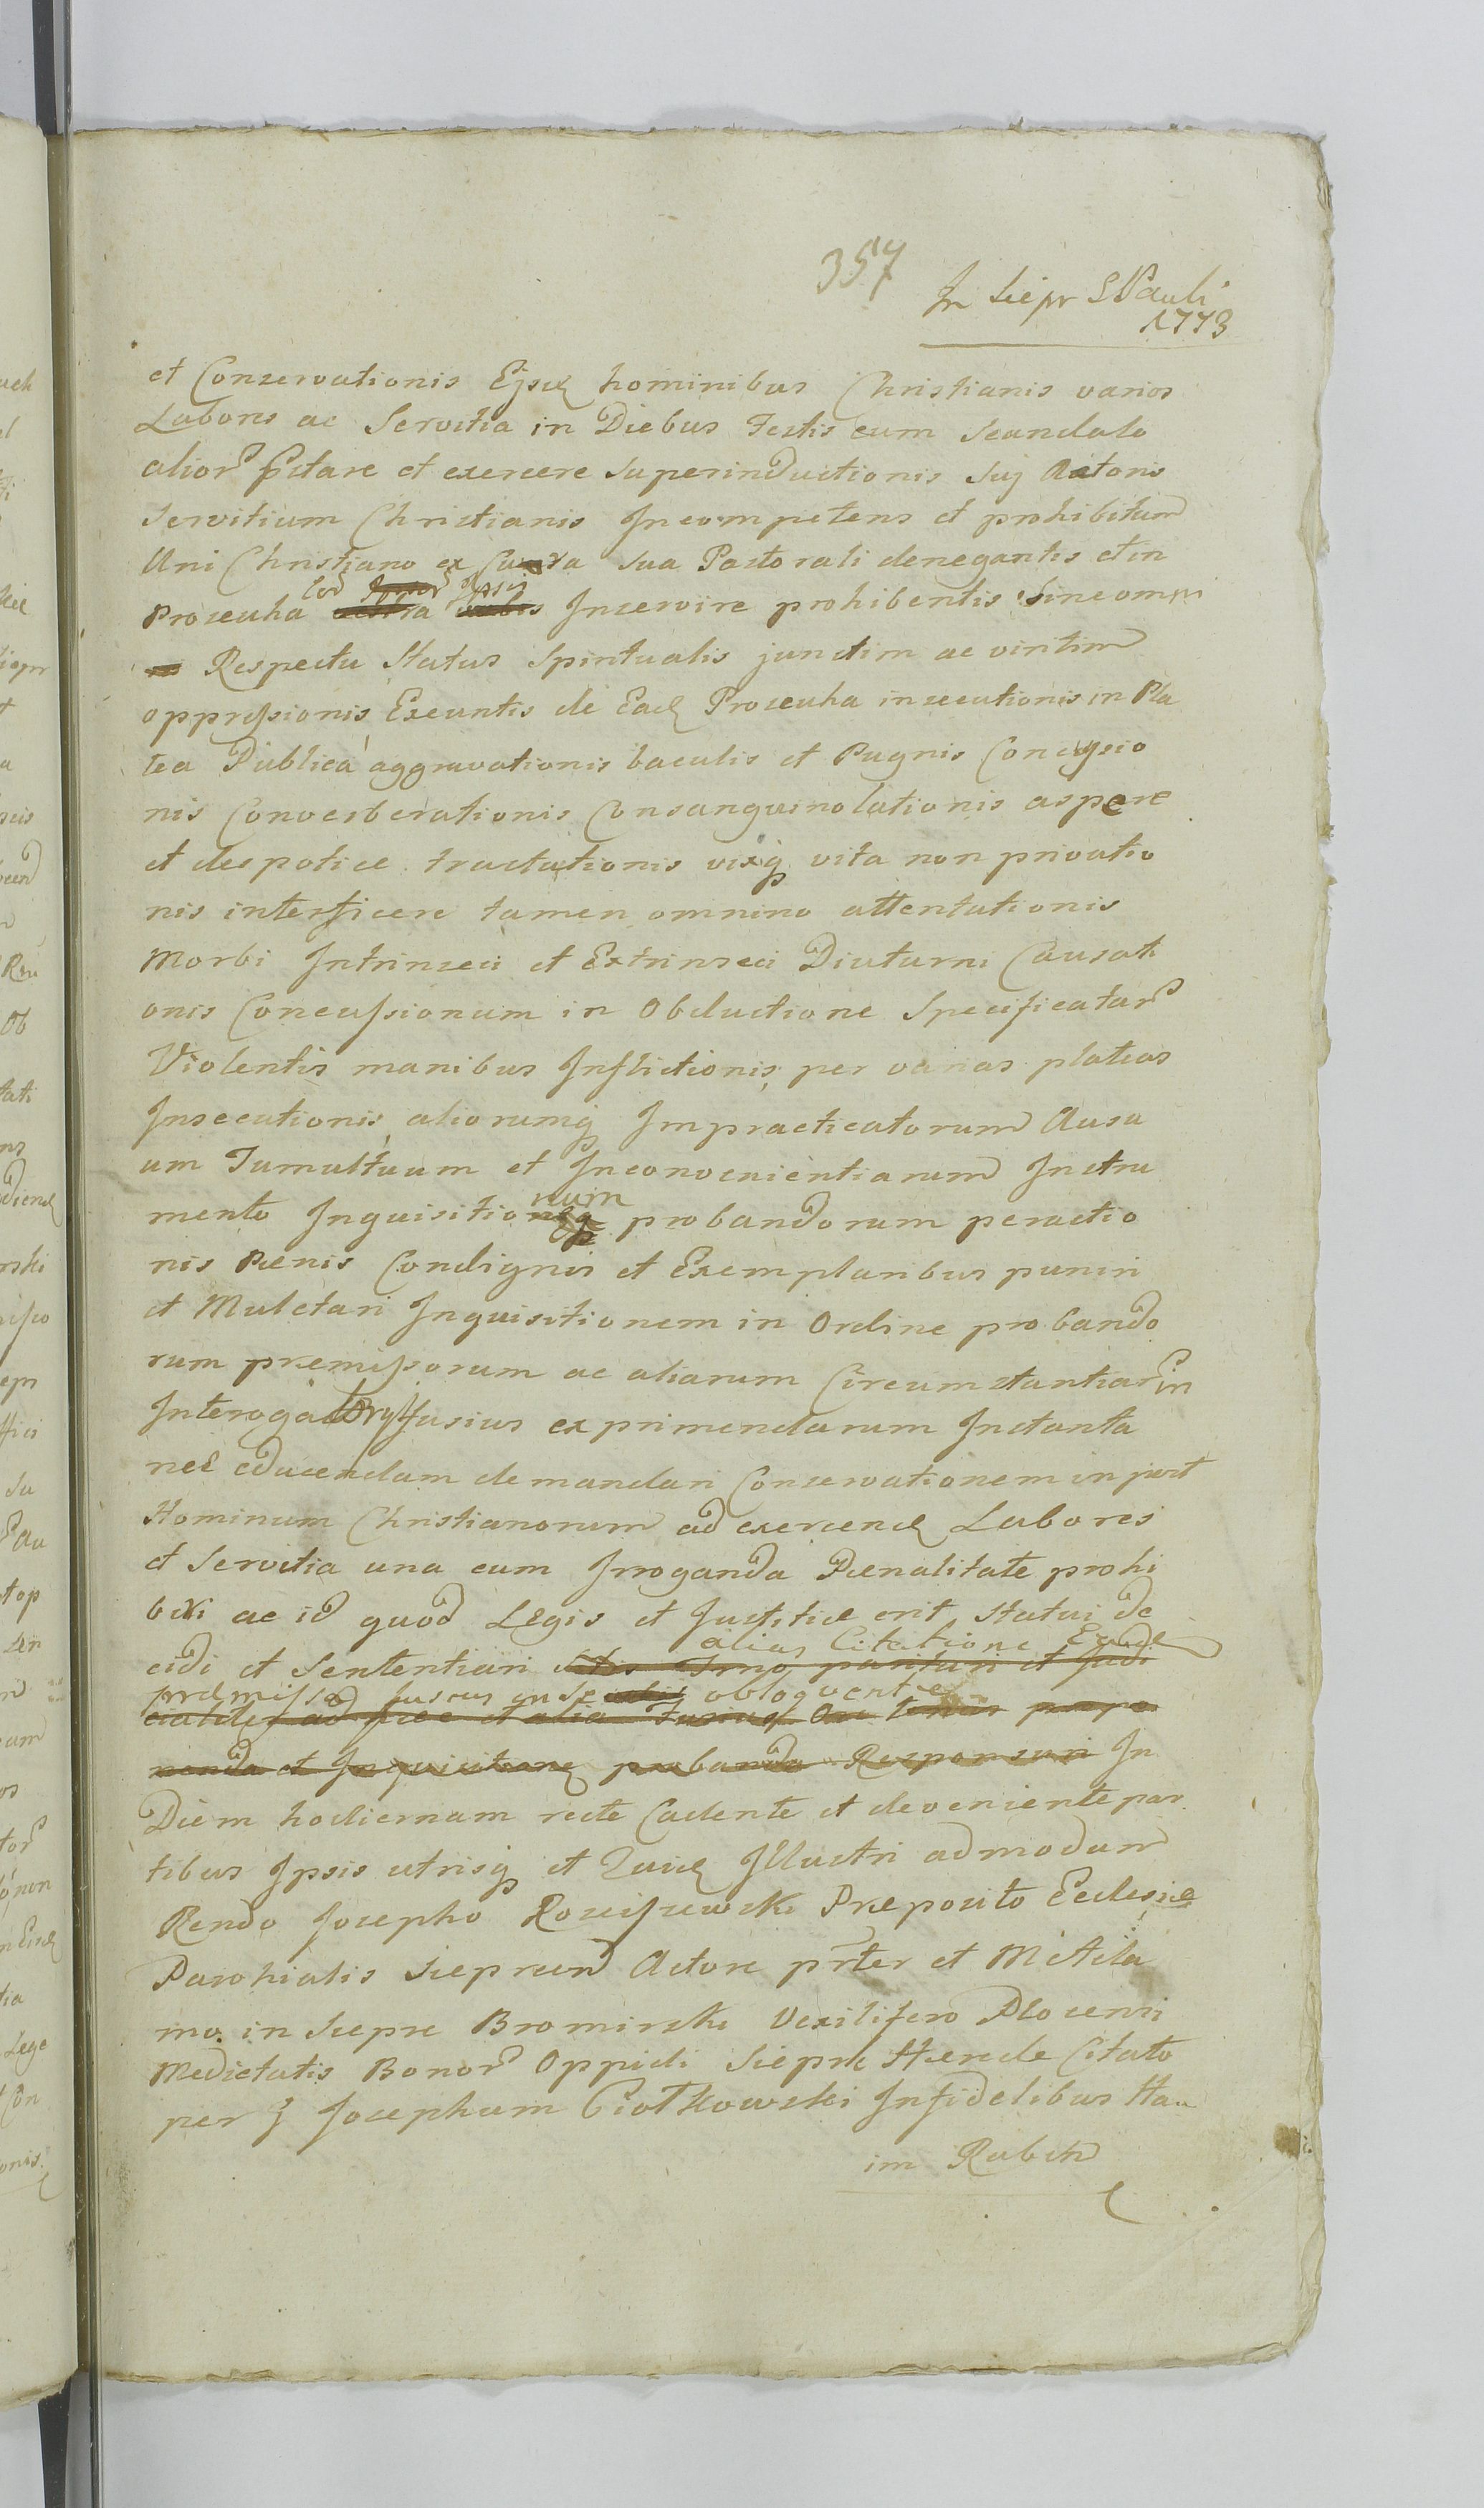 357
In Siepr S Pauli
1773
et Conservationis Ejsd hominibus Christianis varios
Labores ac Servitia in Diebus Festis cum Scandalo
alior pstare et exercere superinductionis Suj Actoris
Servitium Christianis Incompetens et prohibitum
Uni Christiano ex Cura sua Pastorali denegantis et in
Proseuha Inservire prohibentis Sine omni
Respectu Status Spiritualis junctim ac viritim
oppressionis Exeuntis de Ead Proseuha insecutionis in Pla
tea Publica aggravationis baculis et Pugnis Concussio
nis Converberationis Consanguinolationis aspere
et despotice tractationis vixq vita non privatio
nis interficere tamen omnino attentationis
Morbi Intrinseci et Extrinseci Diuturni Causati
onis Concussionum in Obductione Specificatar
Violentis manibus Inflictionis per varias plateas
Insecutionis aliorumq Impracticatorum Ausu
um Tumultuum et Inconvenientiarum Instru
mento Inquisitionum probandorum peractio
nis Pœnis Condignis et Exemplaribus puniri
et Mulctari Inquisitionem in Ordine probando
rum premissorum ac aliarum Circumstantiar in
Interogatorys fusius exprimendarum Instanta
nee educendam demandari Conservationem in post
Hominum Christianorum ad exercend Labores
et Servitia una cum Irroganda Pœnalitate prohi
beri ac id quod Legis et Justitiæ erit, Statui de
alias Citatione Eade
cidi et Sententiari
præmissa fusius in se obloquente
nenda et Inquisitione probanda Responsuri In
Diem hodiernam recte Cadente et deveniente par
tibus Ipsis utrisq et quid Illustri admodum
Rendo Josepho Rosciszewski Præposito Ecclesiæ
Parohialis Sieprcen Actore prter et M Adla
mo in Siepre Bromirski Vexilifero Plocensi
Medietatis Bonor Oppidi Siepre Hærede Citato
per G Josephum Ciotkowski Infidelibus Ha
im Rabin